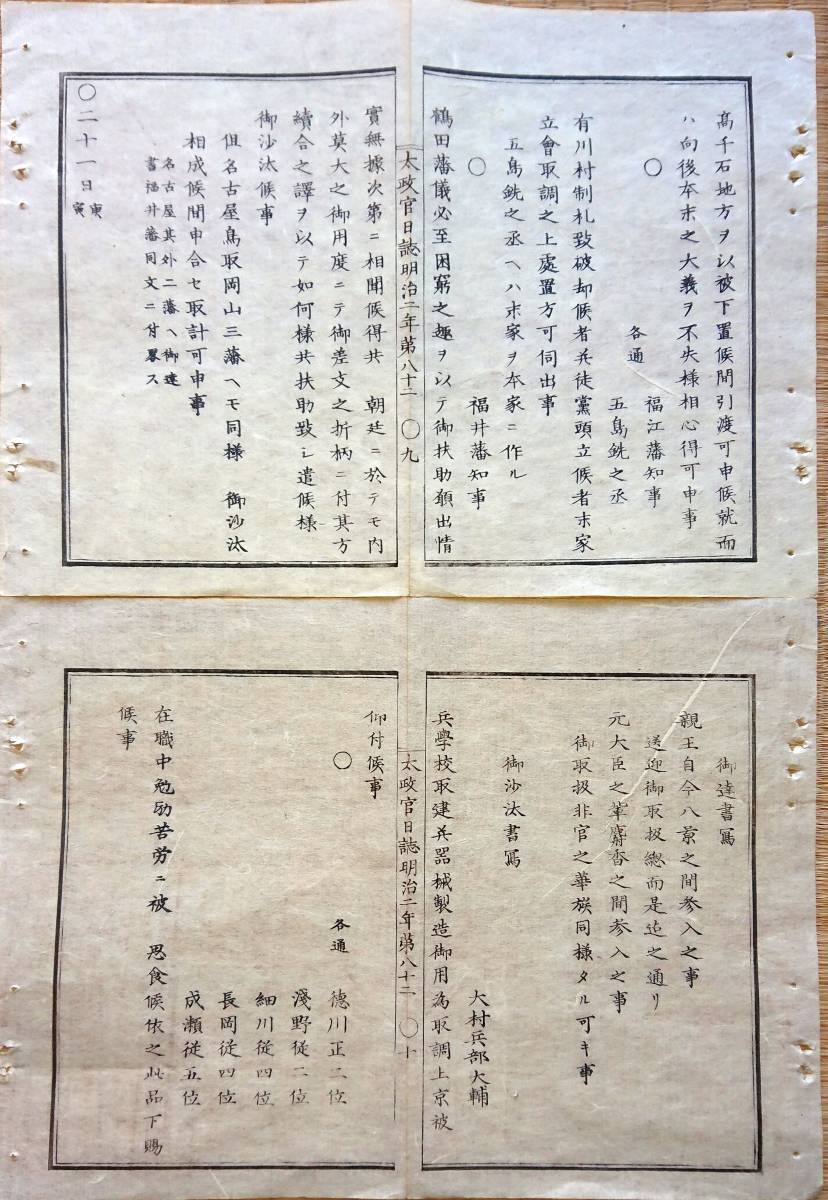 高千石地方ヲ以被下置候間引渡可申候就而
ハ向後本末之大義ヲ不失様相心得可申事
〇
各通
福江藩知事
五島銑之丞
有川村制札致破却候者兵徒黨頭立候者末家
立會取調之上處置方可伺出事
五島銑之丞ヘハ末家ヲ本家ニ作ル
〇
福井藩知事
鶴田藩儀必至困窮之趣ヲ以テ御扶助願出情
太政官日誌明治二年第八十二
〇九
實無據次第ニ相聞候得共 朝廷ニ於テモ内
外莫大之御用度ニテ御差支之折柄ニ付其方
續合之譯ヲ以テ如何様共扶助致シ遣候様
御沙汰候事
但名古屋鳥取岡山三藩ヘモ同様 御沙汰
相成候間申合セ取計可申事
名古屋其外二藩ヘ御達
書福井藩同文ニ付畧ス
〇二十一日庚寅
御達書寫
親王自今八景之間参入之事
送迎御取扱總而是迄之通リ
元大臣之輩麝香之間参入之事
御取扱非官之華族同様タル可キ事
御沙汰書寫
大村兵部大輔
兵學校取建兵器械製造御用為取調上京被
太政官日誌明治二年第八十二
〇十
仰付候事
〇
各通
德川正二位
淺野従二位
細川従四位
長岡従四位
成瀬従五位
在職中勉励苦労ニ被 思食候依之此品下賜
候事